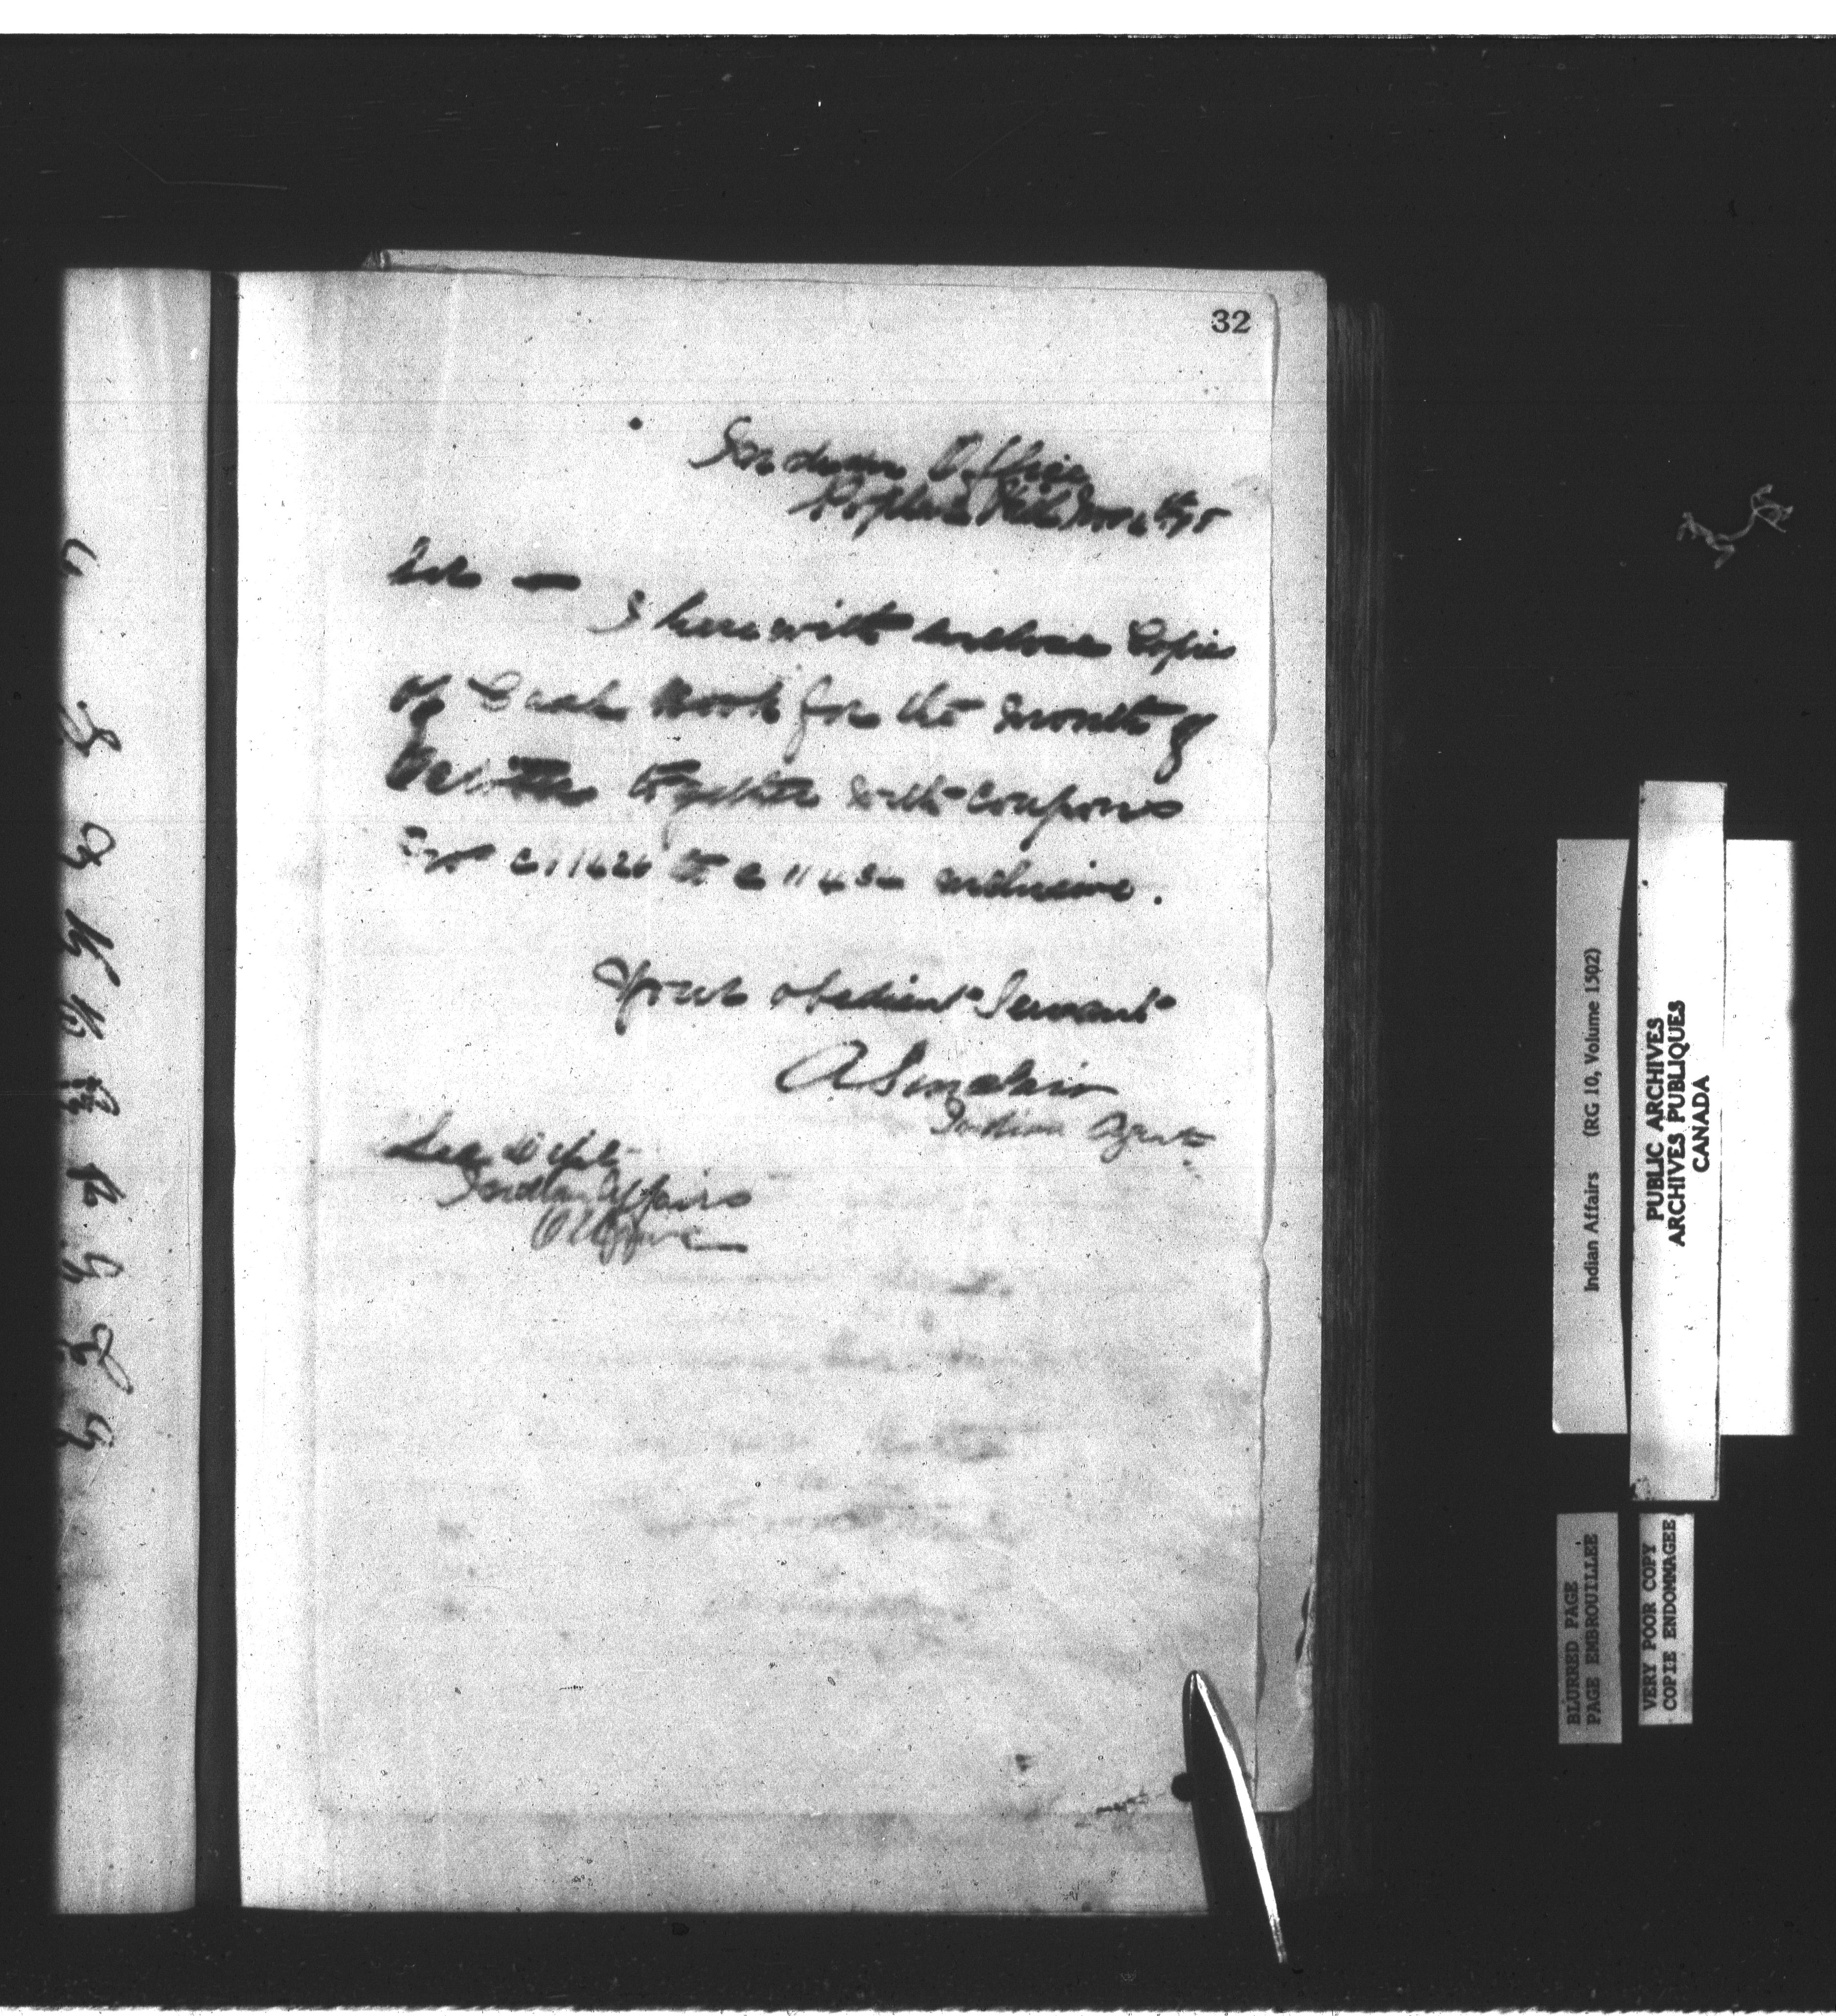 32
Indian Office
Poplar Hill Nov 6th 95
Sir
I herewith enclose Copies
of Cash Book for the month of
October together with Coupons
inclusive.
Your obedient Servant
A Sinclair
Indian Agent
Indian Affairs
Ottawa
Indian Affairs (RG 10, Volume 1502)
PUBLIC ARCHIVES
ARCHIVES PUBLIQUES
CANADA
BLURRED PAGE
PAGE EMBROUILLEE
VERY POOR COPY
COPIE ENDOMMAGEE